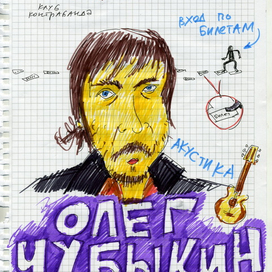 КЛУБ
КОНТРАБАНДА
ВХОД ПО
БИЛЕТАМ
АКУСТИКА
ОЛЕГ
ЧУБЫКИН